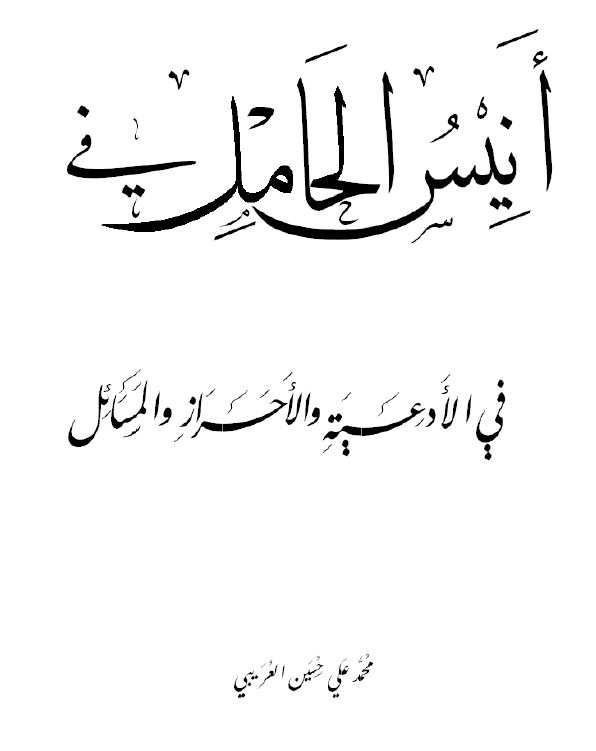 أَنِيسُ الحَامِلِ في
في الأَدعِيَةِ والأَحرَازِ والمَسَائِل
مُحمَّد عَلي حُسَين العُرَيبي